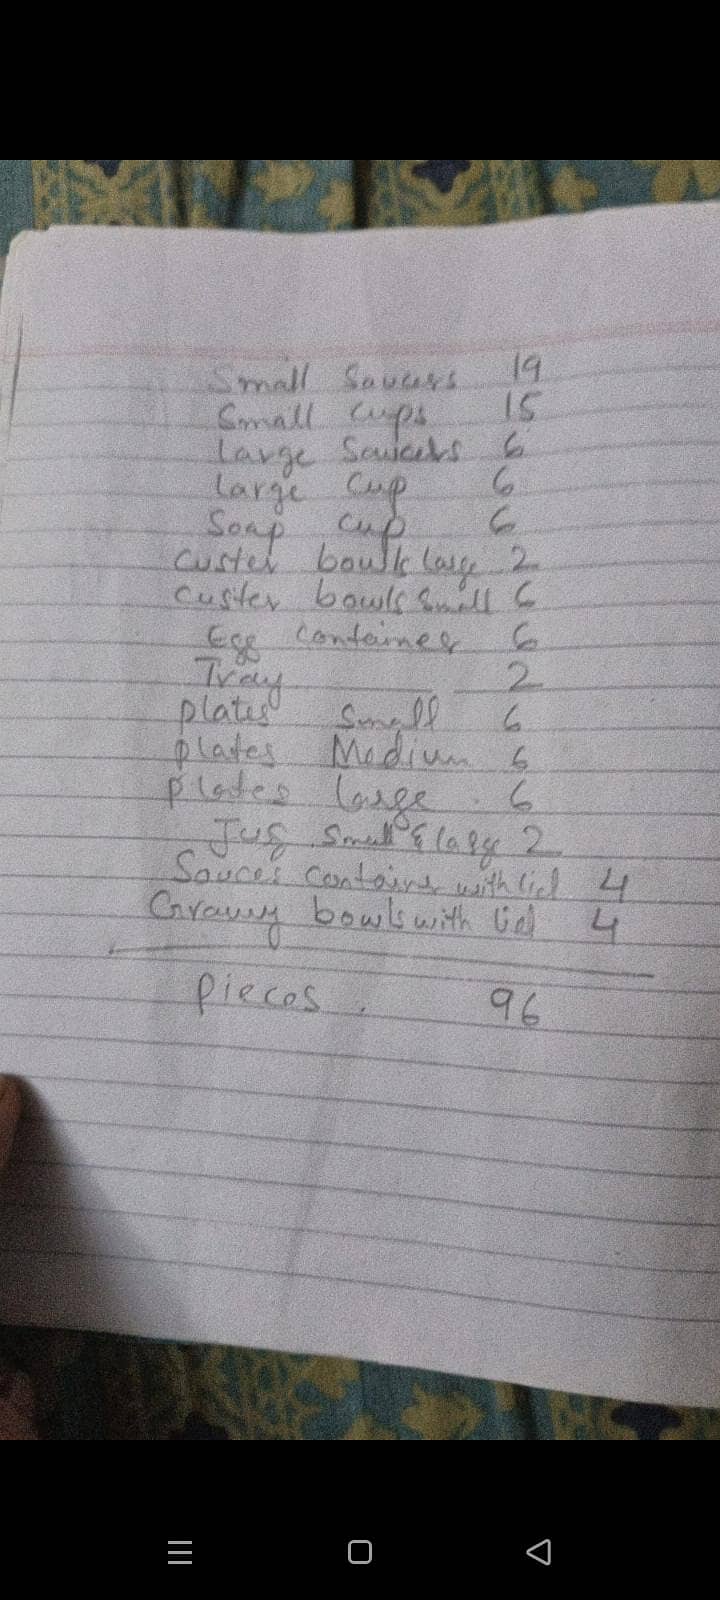 Small Saucers 19
Small Cups 15
Large Saucers 6
Large Cup 6
Soap Cup 6
Custer bowls large 2
Custer bowls Small 6
Egg Container 6
Tray 2
plates Small 6
plates Medium 6
plates large . 6
Jug Small & large 2
Sauces Container with lid 4
Gravuy bowls with lid 4
Pieces . 96